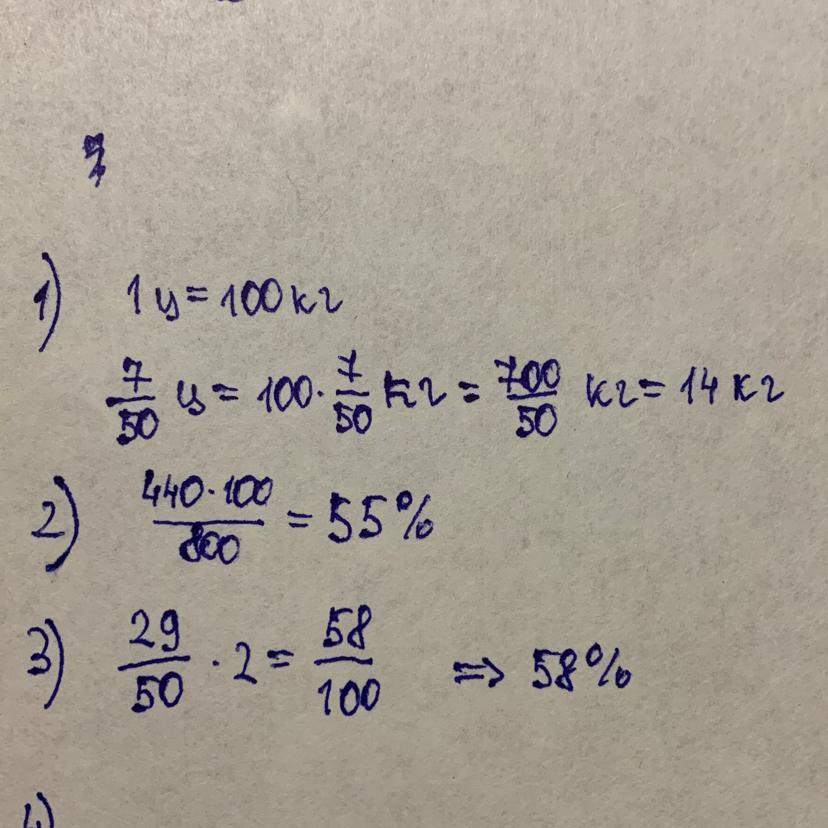 7
1) 1 ц = 100 кг
7/50 ц = 100 · 7/50 кг = 700/50 кг = 14 кг
2) 440 · 100/800 = 55%
3) 29/50 · 2 = 58/100 => 58%
4)